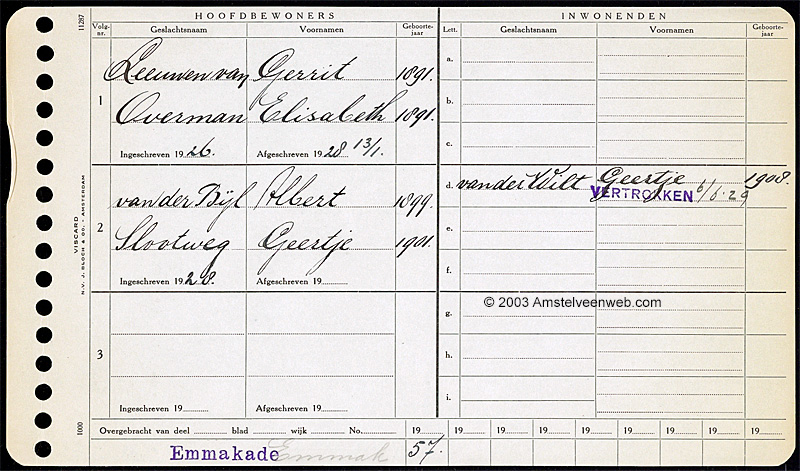 HOOFDBEWONERS
INWONENDEN
Volg-nr. Geslachtsnaam Voornamen Geboorte-jaar
Lett. Geslachtsnaam Voornamen Geboorte-jaar
11287
1
Leeuwen van Gerrit 1891.
Overman Elisabeth 1891.
Ingeschreven 1926. Afgeschreven 1928 13/1.
a.
b.
c.
2
van der Bijl Albert 1899.
Slootweg Geertje 1901.
Ingeschreven 1928. Afgeschreven 19
d. van der Wilt Geertje 1908.
VERTROKKEN 6/6-29
e.
f.
3
Ingeschreven 19 Afgeschreven 19
g.
© 2003 Amstelveenweb.com
h.
i.
VISCARD
N.V. J. BLOCH & Co. - AMSTERDAM
1000
Overgebracht van deel blad wijk No. 19 19 19 19 19 19 19 19 19
Emmakade Emmak 57.